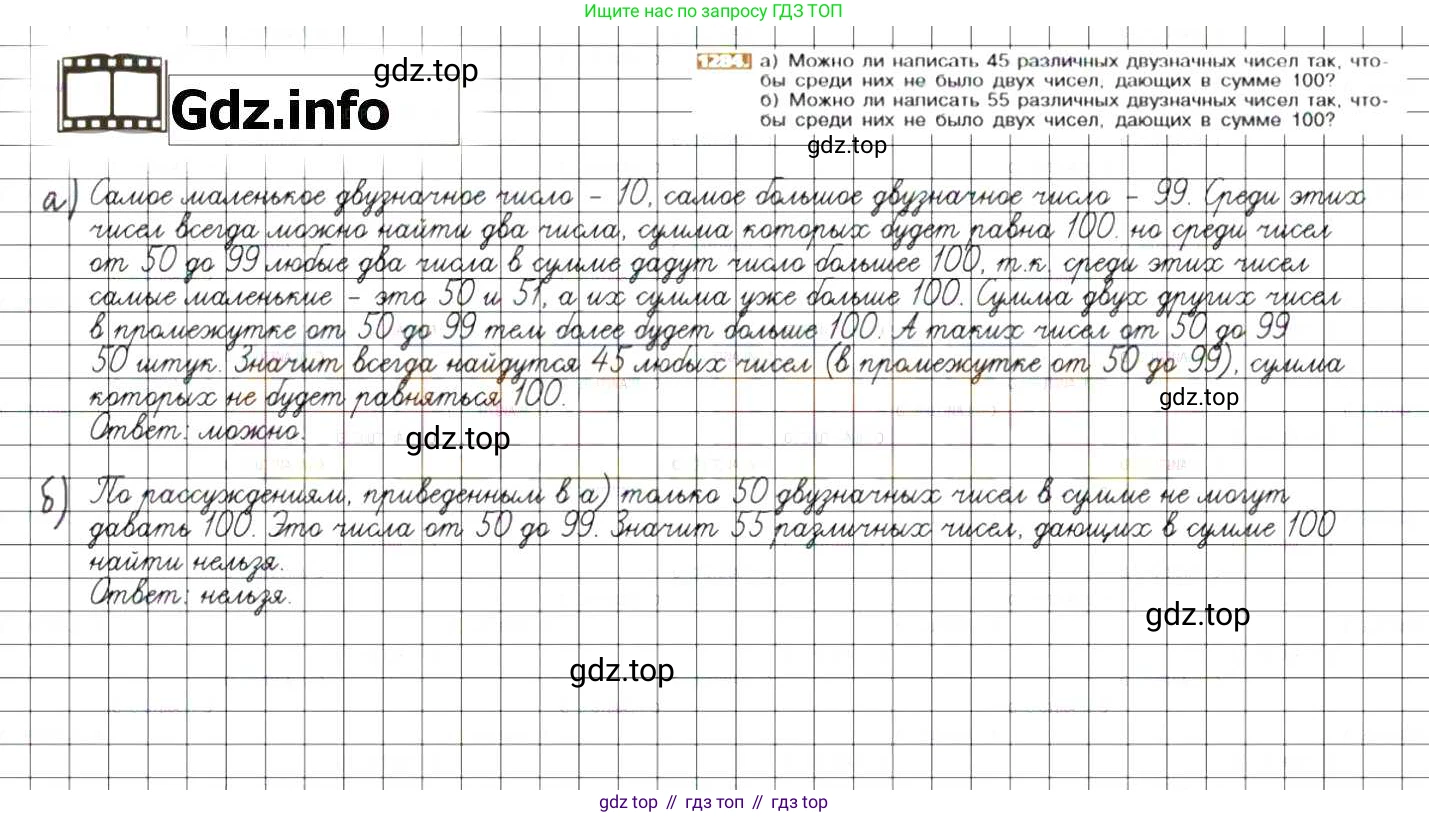 Ищите нас по запросу ГДЗ ТОП
gdz.top
Gdz.info
1284. а) Можно ли написать 45 различных двузначных чисел так, что-
бы среди них не было двух чисел, дающих в сумме 100?
б) Можно ли написать 55 различных двузначных чисел так, что-
бы среди них не было двух чисел, дающих в сумме 100?
gdz.top
а) Самое маленькое двузначное число – 10, самое большое двузначное число – 99. Среди этих
чисел всегда можно найти два числа, сумма которых будет равна 100. но среди чисел
от 50 до 99 любые два числа в сумме дадут число большее 100, т.к. среди этих чисел
самые маленькие – это 50 и 51, а их сумма уже больше 100. Сумма двух других чисел
в промежутке от 50 до 99 тем более будет больше 100. А таких чисел от 50 до 99
50 штук. Значит всегда найдутся 45 любых чисел (в промежутке от 50 до 99), сумма
которых не будет равняться 100.
gdz.top
Ответ: можно.
gdz.top
б) По рассуждениям, приведенным в а) только 50 двузначных чисел в сумме не могут
давать 100. Это числа от 50 до 99. Значит 55 различных чисел, дающих в сумме 100
найти нельзя.
Ответ: нельзя.
gdz.top
gdz.top
gdz top // гдз топ // gdz top